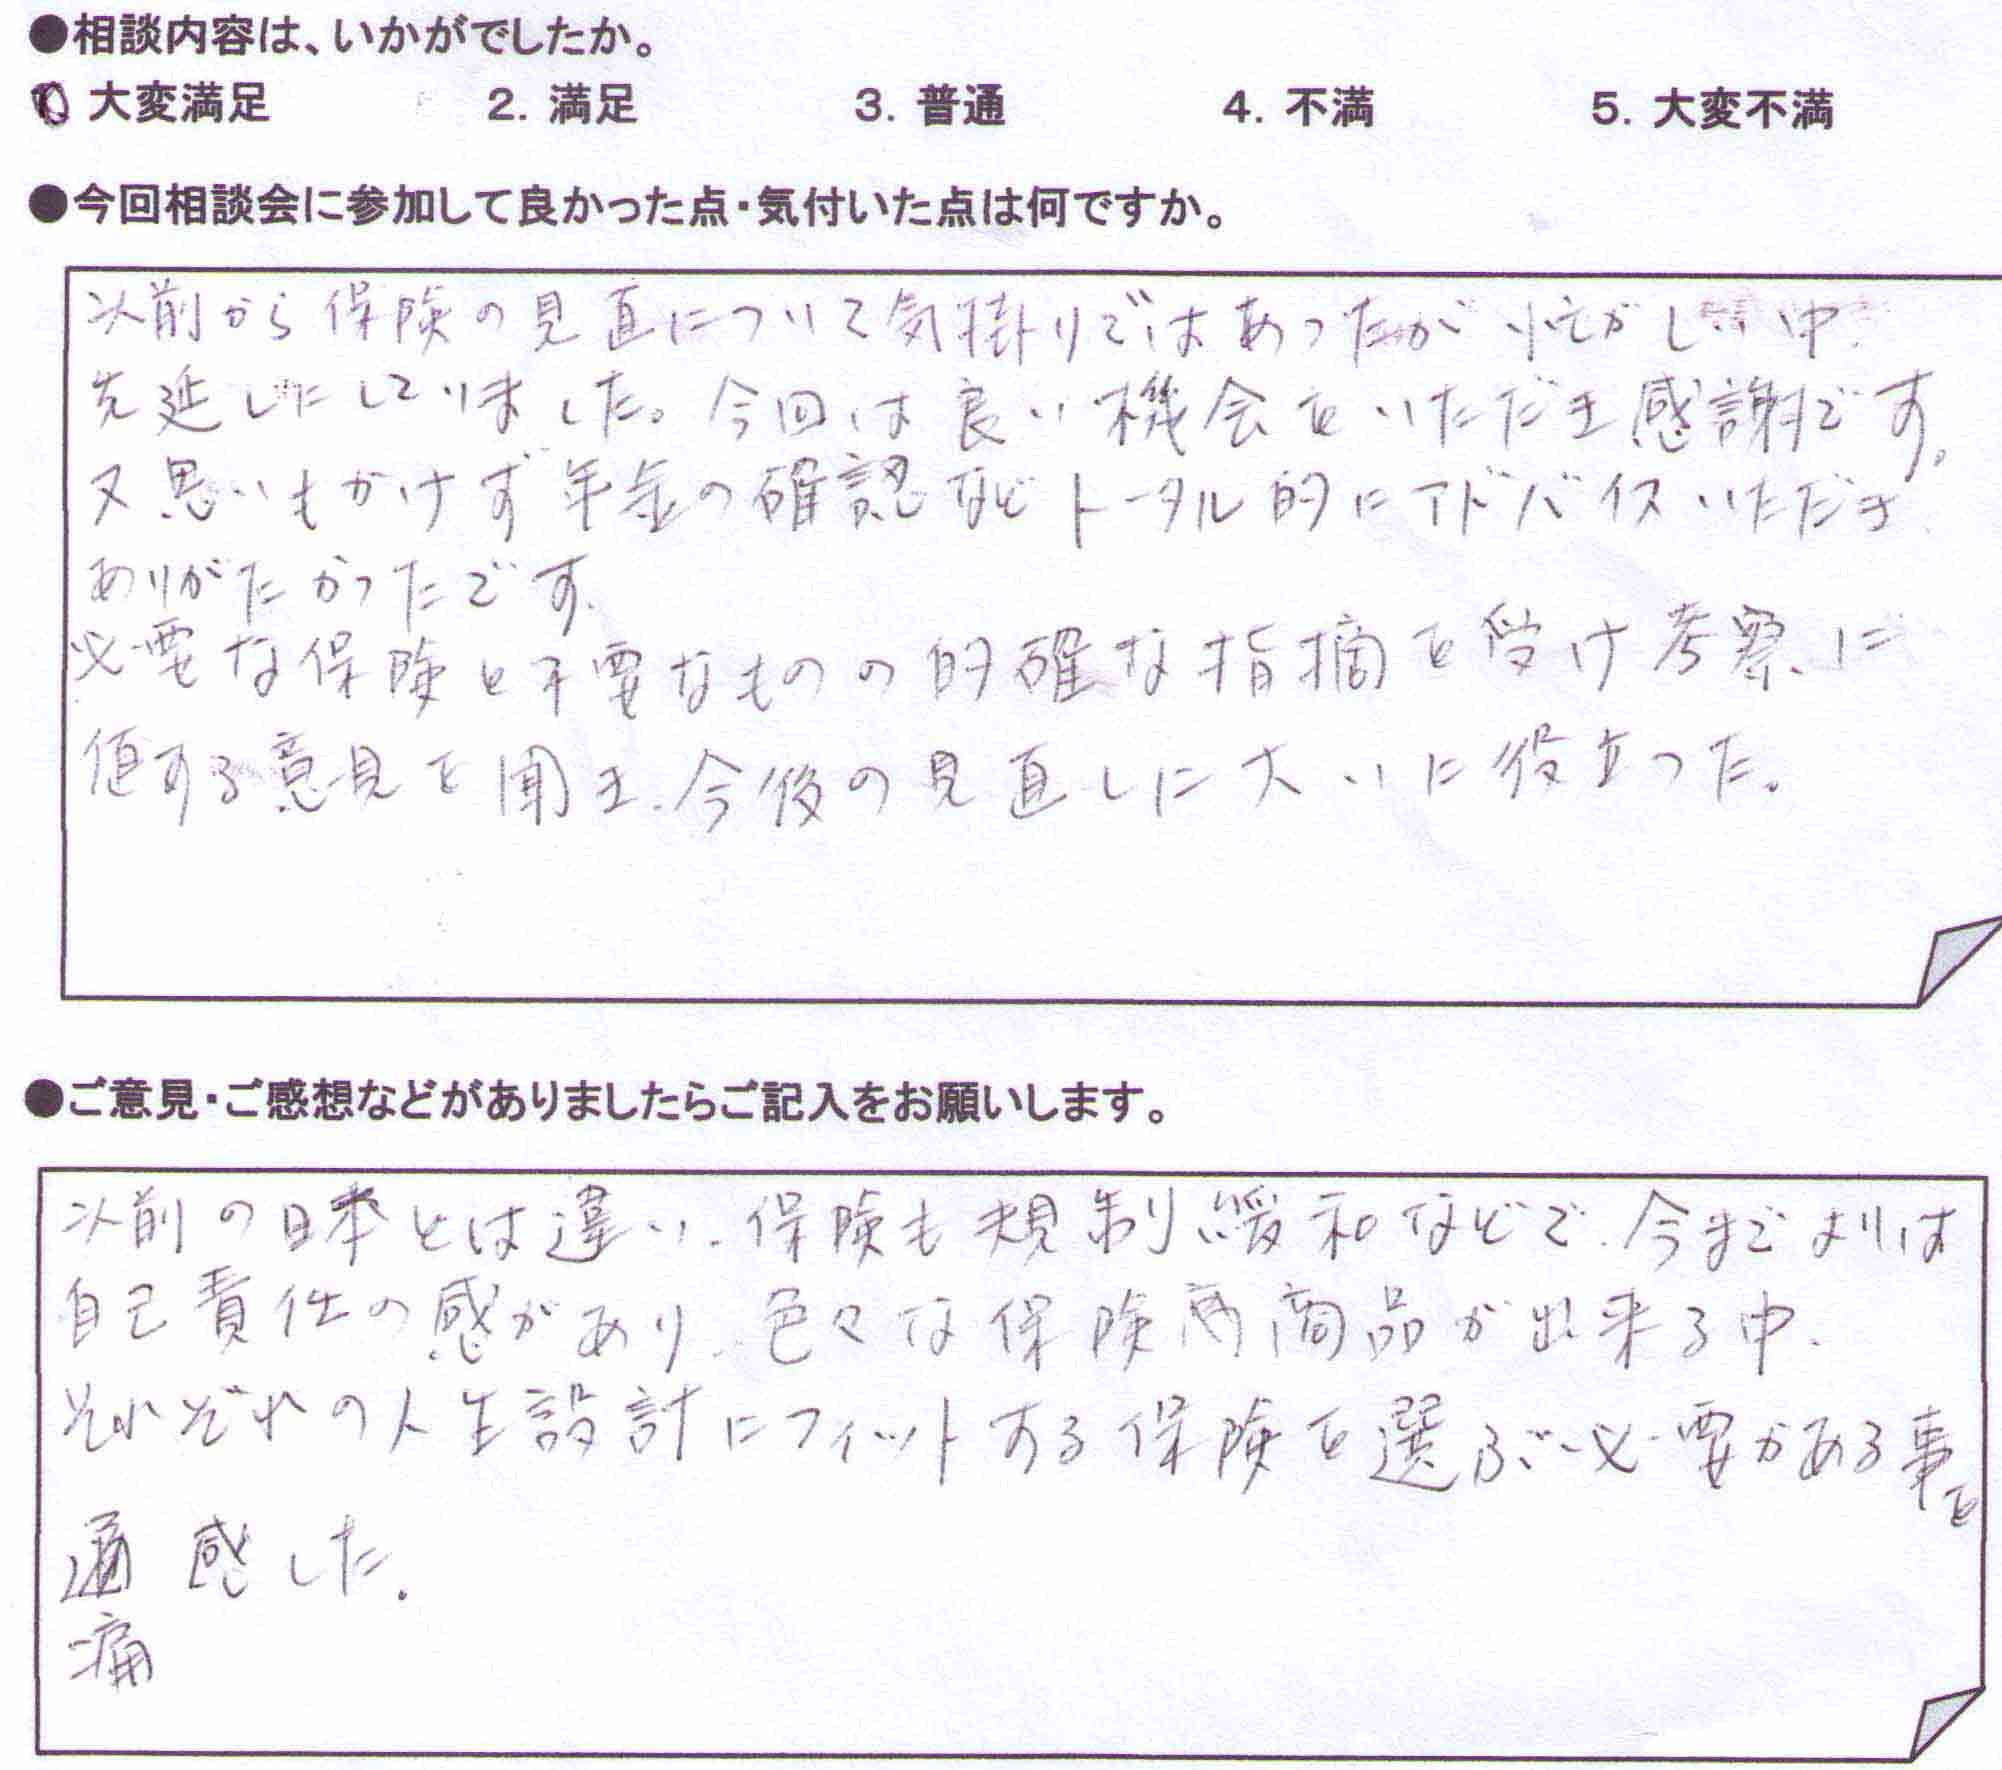 ●相談内容は、いかがでしたか。
1 大変満足 2. 満足 3. 普通 4. 不満 5. 大変不満
●今回相談会に参加して良かった点・気付いた点は何ですか。
以前から保険の見直について気掛りではあったが忙がしい中
先延しにしていました。今回は良い機会をいただき感謝です。
又思いもかけず年金の確認などトータル的にアドバイスいただき
ありがたかったです。
必要な保険と不要なものの的確な指摘を受け考察に
値する意見を聞き、今後の見直しに大いに役立った。
●ご意見・ご感想などがありましたらご記入をお願いします。
以前の日本とは違い、保険も規制緩和などで、今までよりは
自己責任の感があり、色々な保険商品が出来る中、
それぞれの人生設計にフィットする保険を選ぶ必要がある事を
通感した。
痛